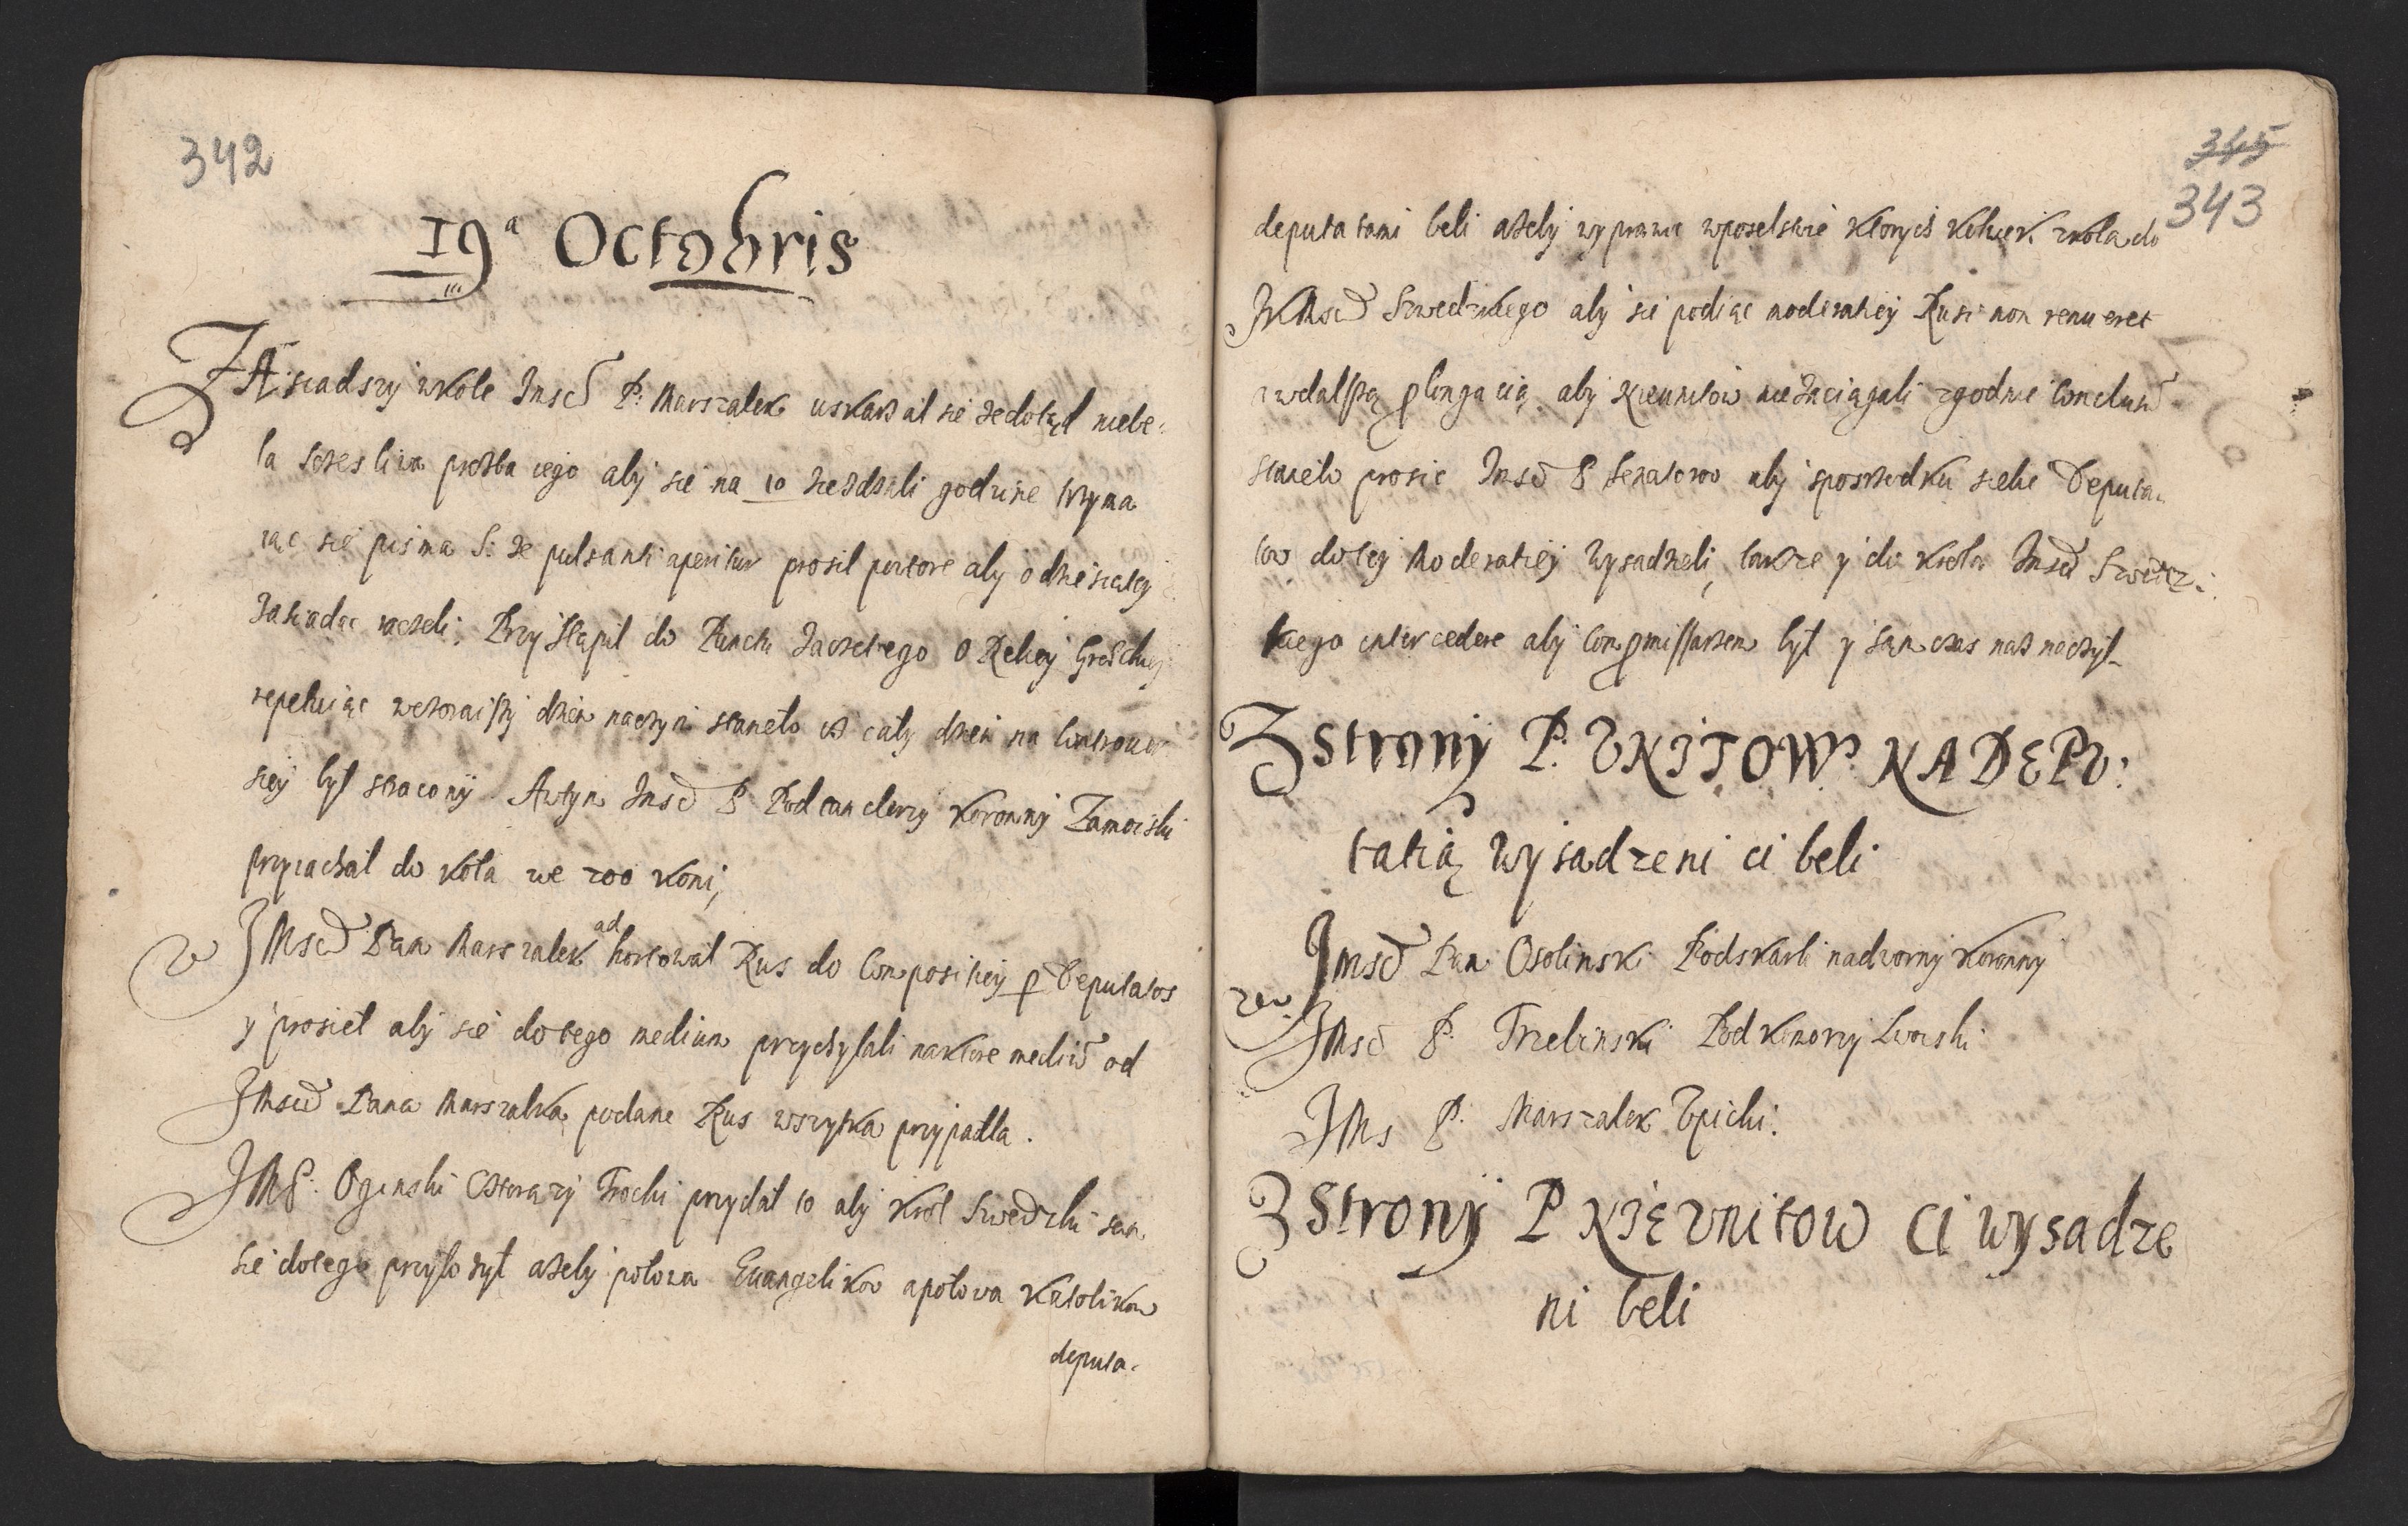 342
19ᵃ Octobris
ZAsiadszy wkole Jmsć P: Marszalek uskarzal sie zedotąd niebe:
la sczesliwa prozba iego aby sie na 10 ziezdzali godzine trzyma
iąc sie pisma S: ze pulsanti aperitur prosil powtore aby o dziesiatey
zasiadac raczeli. Przystąpil do Punctu zaczetego O Reliey Greckiey
repetuiąc wczoraiszy dzien naczym staneło iz cały dzien na Contrower
siey był stracony Awtym Jmsć P Podcanclerzy Koronny Zamoiski
przyiachał do koła we 200 koni,
JMsć Pan Marszalek adhortował Rus do Compositiey p Deputatos
y prosieł aby sie dotego medium przychylali naktore medium od
JMsci Pana Marszalka podane Rus wszytka przypadla.
JM P: Oginski Chorązy Trocki przydał to aby Krol Swedzki sam
sie dotego przyłozył azeby połowa Euangelikow apołowa Katolikow
deputa-
345
343
deputatami beli azeby wyprawic wposelstwie ktorych kolwiek zkoła do
JKMsci Szwedzkiego aby sie podiąc moderatiey Rusi non renueret
a wdalszą plongacią aby Nieunitow niezaciągali zgodnie Conclusum
staneło prosic Jmsć P Senatorow aby sposrzodku siebie Deputa-
tow dotey Moderatiey wysadzieli, takze y do krola Jmsci Swedz:
kiego intercedere aby Compmissarzem był y sam czas naznaczył
Z strony P. UNITOW: NA DEPU:
tatią wysadzeni ci beli
Jmsć Pan Osolinski Podskarbi nadworny Koronny
JMsć P. Trzebinski Podkomorzy Lwoski
JMs P. Marszalek Upicki:
Z Strony P NIEUnitow ci wysadze
ni beli